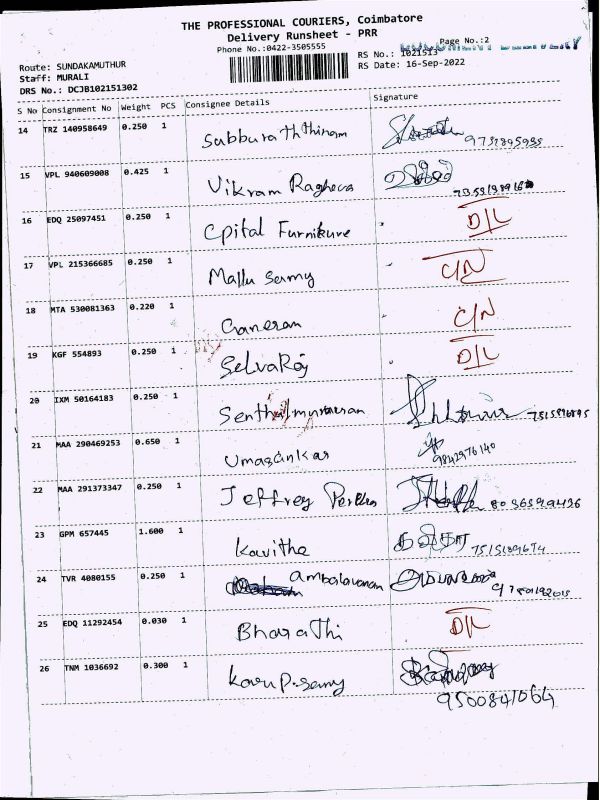 THE PROFESSIONAL COURIERS, Coimbatore
Delivery Runsheet - PRR
Phone No.:0422-3505555
Page No.:2
Route: SUNDAKAMUTHUR
RS No.: 1021513
Staff: MURALI
RS Date: 16-Sep-2022
DRS No.: DCJB102151302
S No Consignment No Weight PCS Consignee Details Signature
14 TRZ 140958649 0.250 1 Subburaththinam
15 VPL 940609008 0.425 1 Vikram Raghava
16 EDQ 25097451 0.250 1 Cpital Furniture D/L
17 VPL 215366685 0.250 1 Mallu Samy C/N
18 MTA 530081363 0.220 1 Ganesan C/N
19 KGF 554893 0.250 1 SelvaRaj D/L
20 IXM 50164183 0.250 1
21 MAA 290469253 0.650 1 Umasankar 9842976140
22 MAA 291373347 0.250 1 Jeffrey
23 GPM 657445 1.600 1 Kavitha கவிதா
24 TVR 4080155 0.250 1 Ambalavanan
25 EDQ 11292454 0.030 1 Bharathi D/L
26 TNM 1036692 0.300 1 Karuppsamy
9500841064